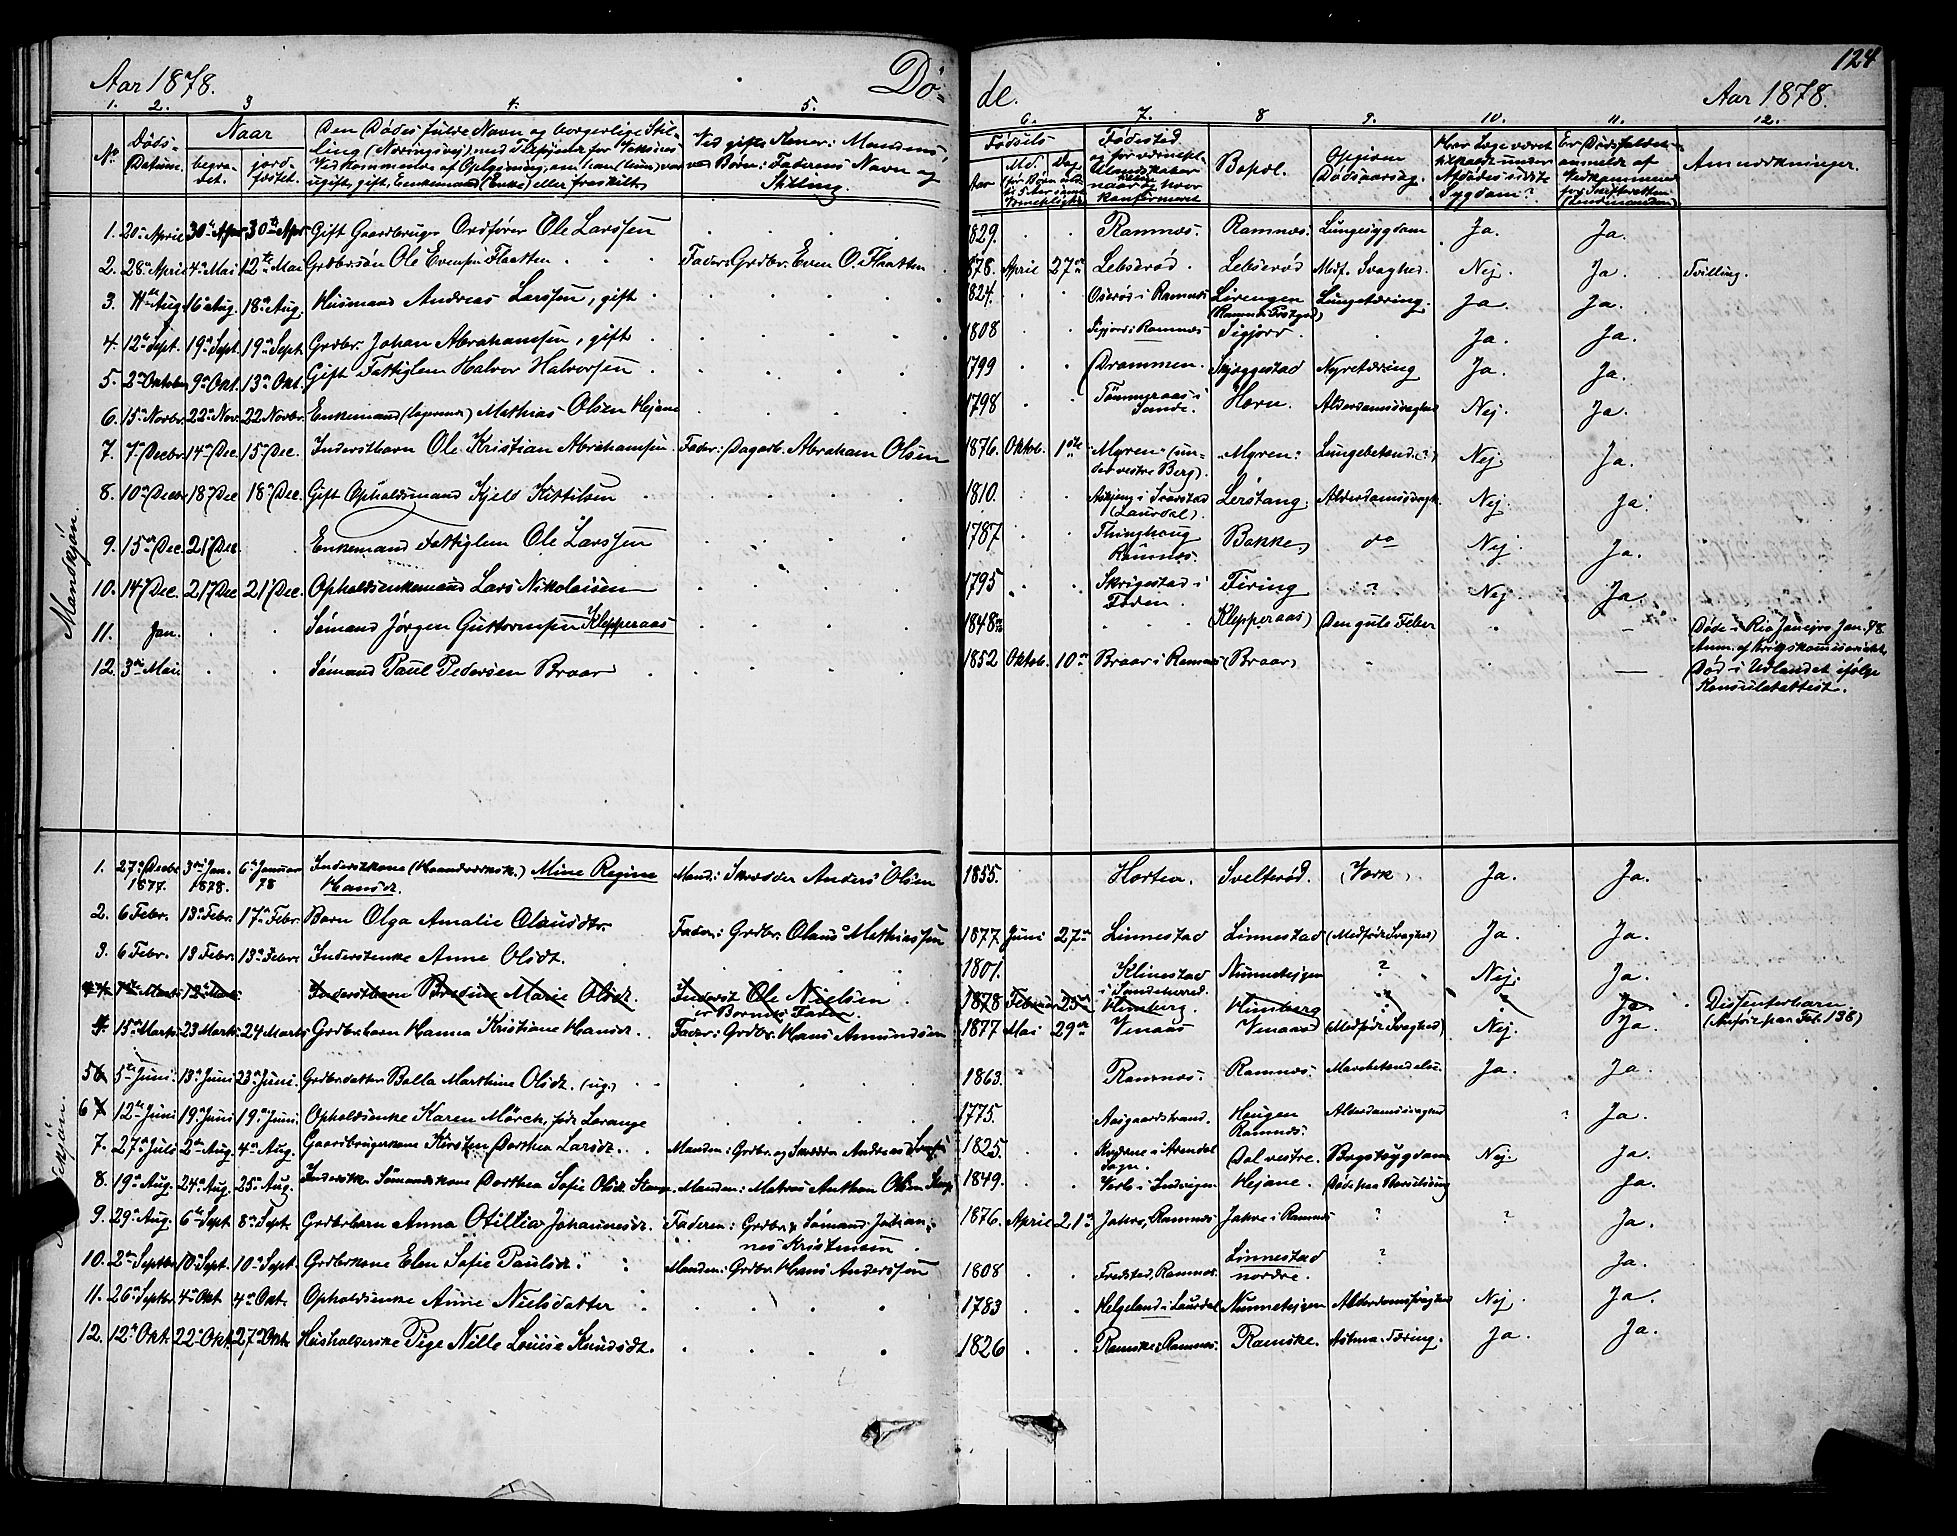 124
Aar 1878. Dø- de. Aar 1878.
1. 2. 3 4. 5. 6. 7. 8 9. 10. 11. 12.
No Døds-Datum. Naar begra-vet. jord-fæstet. Den Dødes fulde Navn og borgerlige Stil-ling (Næringsvej) ugift, gift, Enkemand (Enke) eller fraskilt Ved gifte Koner: Mandens, ved Børn: Faderens Navn og Stilling. Fødsels Aar Md. Dag Fødested Bopæl. Opgiven Dødsaarsag. Har Læge været tilkaldt under Afdødes sidste Sygdom? Er Dødsfaldet anmeldt af Vedkommende for Skifteretten (Lensmanden) Anmærkninger.
Mandkjøn.
1. 20de April 30te Apr 30te Apr Gift Gaardbruger Ordfører Ole Larssen 1829. Ramnæs. Ramnæs. Lungesygdom Ja. Ja.
2. 28de April 4de Mai 12te Mai Grdbr.søn Ole Evensen Flaatten Fader: Grdbr. Even O. Flaatten 1878. April 27de Lebserød. Lebserød Medf. Svaghed. Nej. Ja. Tvilling.
3. 11te Aug. 16de Aug. 18de Aug. Husmand Andreas Larssen, gift 1824. Oserød i Ramnæs Lørengen Lungetæring. Ja. Ja.
4. 12te Sept. 19de Sept. 19de Sept Grdbr. Johan Abrahamsen, gift 1808 Sigjord i Ramnæs Sigjord. Ja. Ja.
5. 2den Oktober 9de Okt. 13de Okt. Gift Fattiglem Halvor Halvorsen 1799 Drammen. Skjæggestad Nyretæring Ja. Ja.
6. 15de Novbr. 22de Nov. 22 Novbr. Enkemand Mathias Olsen Hejane 1798 Sande. Horn. Alderdomssvaghed Nej. Ja.
7. 7de Decbr 14de Dec. 15de Dec. Inderstbarn Ole Kristian Abrahamsen Fader: Dagarb. Abraham Olsen 1876. Oktob. 1ste Myren (un-der vestre Berg). Myren: Lungebetænd. Nej. Ja.
8. 10de Decbr 18de Dec 18de Dec. Gift Opholdsmand Kjeld Kittilsen 1810. Svarstad (Laurdal). Lerstang Alderdomssvagh. Nej. Ja.
9. 15de Dec. 21de Dec. Enkemand Fattiglem Ole Larssen 1787 Thinghoug Ramnæs. Bakke do Nej. Ja.
10. 14de Dec. 21de Dec 21de Dec. Opholdsenkemand Lars Nikolaisen 1795 Skrigestad i Foden. Firing ? Nej. Ja.
11. Jan. Sømand Jørgen Guttormsen Klepperaas 1848 (Klepperaas) Den gule Feber — Døde i Rio Janejro Jan. 78
12. 3die Mai. Sømand Paul Pedersen Braar 1852 Oktob. 10de Braar i Ramnæs (Braar) — Død i Udlandet ifølge
Konsulatattest.
Kvindekjøn.
1. 27de Decbr 1877. 3die Jan. 1878. 6te Januar 78 Inderstkone (Haandværksk.) Mine Regine Hansd. Mand: Skrædder Anders Olsen 1855. Horten. Svelterød. (Værk). Ja. Ja.
2. 6 Febr. 13de Febr. 17de Febr. Barn Olga Amalie Olausdtr. Fader: Grdbr. Olaus Mathiassen 1877 Juni 27de Linnestad Linnestad (Medfødt Svaghed) Ja. Ja.
3. 6 Febr. 13 Febr. 13de Febr. Inderstenke Anne Olsdt. 1801. Klinestad i Sandeherred. Nunnehejgen ? Nej. Ja.
4. 7de Marts 12te Marts Inderstbarn Bredine Marie Olsdt. Inderst Ole Nielsen er Barnets Fader. 1878 Februar 25de Himberg. Himberg ? ? Ja. Dissenterbarn.
(Anført paa Fol. 138)
4. 15de Marts 23 Marts 24 Marts Grdbr.barn Hanna Kristiane Hansd. Fader: Grdbr. Hans Amundsen 1877 Mai 29de Venaas Venaas (Medfødt Svaghed) Nej. Ja.
5 6 5te Juni. 13de Juni 23de Juni. Grdbrdatter Bolla Marthine Olsdt. (ug.) 1863. Ramnæs. Ramnæs. Mavebetændelse. Ja. Ja.
6 7 12te Juni 19de Juni 19de Juni. Opholdsenke Karen Mörch, født Lorange 1775. Aasgaardstrand. Haugen Ramnæs. Alderdomssvaghed ? Ja.
7. 27de Juli 2den Aug. 4de Aug. Gaardbrugerkone Kirsten Dorthea Larsdt. Manden: Grdbr. og Skrædder Andreas 1825. i Arendal Sogn. Dal vestre. Brystsygdom Nej. Ja.
8. 19de Aug. 24de Aug. 25de Aug. Inderstk. Sømandskone Dorthea Sofie Olsdt. Manden: Matros Anthon Olsen 1849. Hejane. Døde paa Barselseng Ja.
9. 29de Aug. 6te Sept 8de Sept. Grdbrbarn Anna Otillia Johannesdt. Faderen: Grdbr. & Sømand Johan-nes Kristensen 1876. April 21de Jahre, Ramnæs Jahre i Ramnæs ? ? Ja.
10. 2den Septbr 10de Sept. 10de Sept. Grdbrkone Elen Sofie Paulsdt. Manden: Grdbr. Hans Anderssen 1808 Fredstad, Ramnæs. Linnestad nordre. ? Ja.
11. 26de Septbr. 4de Okt 4de Okt. Opholdsenke Anne Nielsdatter 1783 Helgeland i Laurdal Nunnehejgen Alderdomssvaghed Nej. Ja.
12. 12te Okt. 22de Okt. 27de Okt. Husholderske Pige Nille Louise Knudsdt. 1826 Ramske, Ramnæs. Ramske. Astma. Tæring. Ja. Ja.